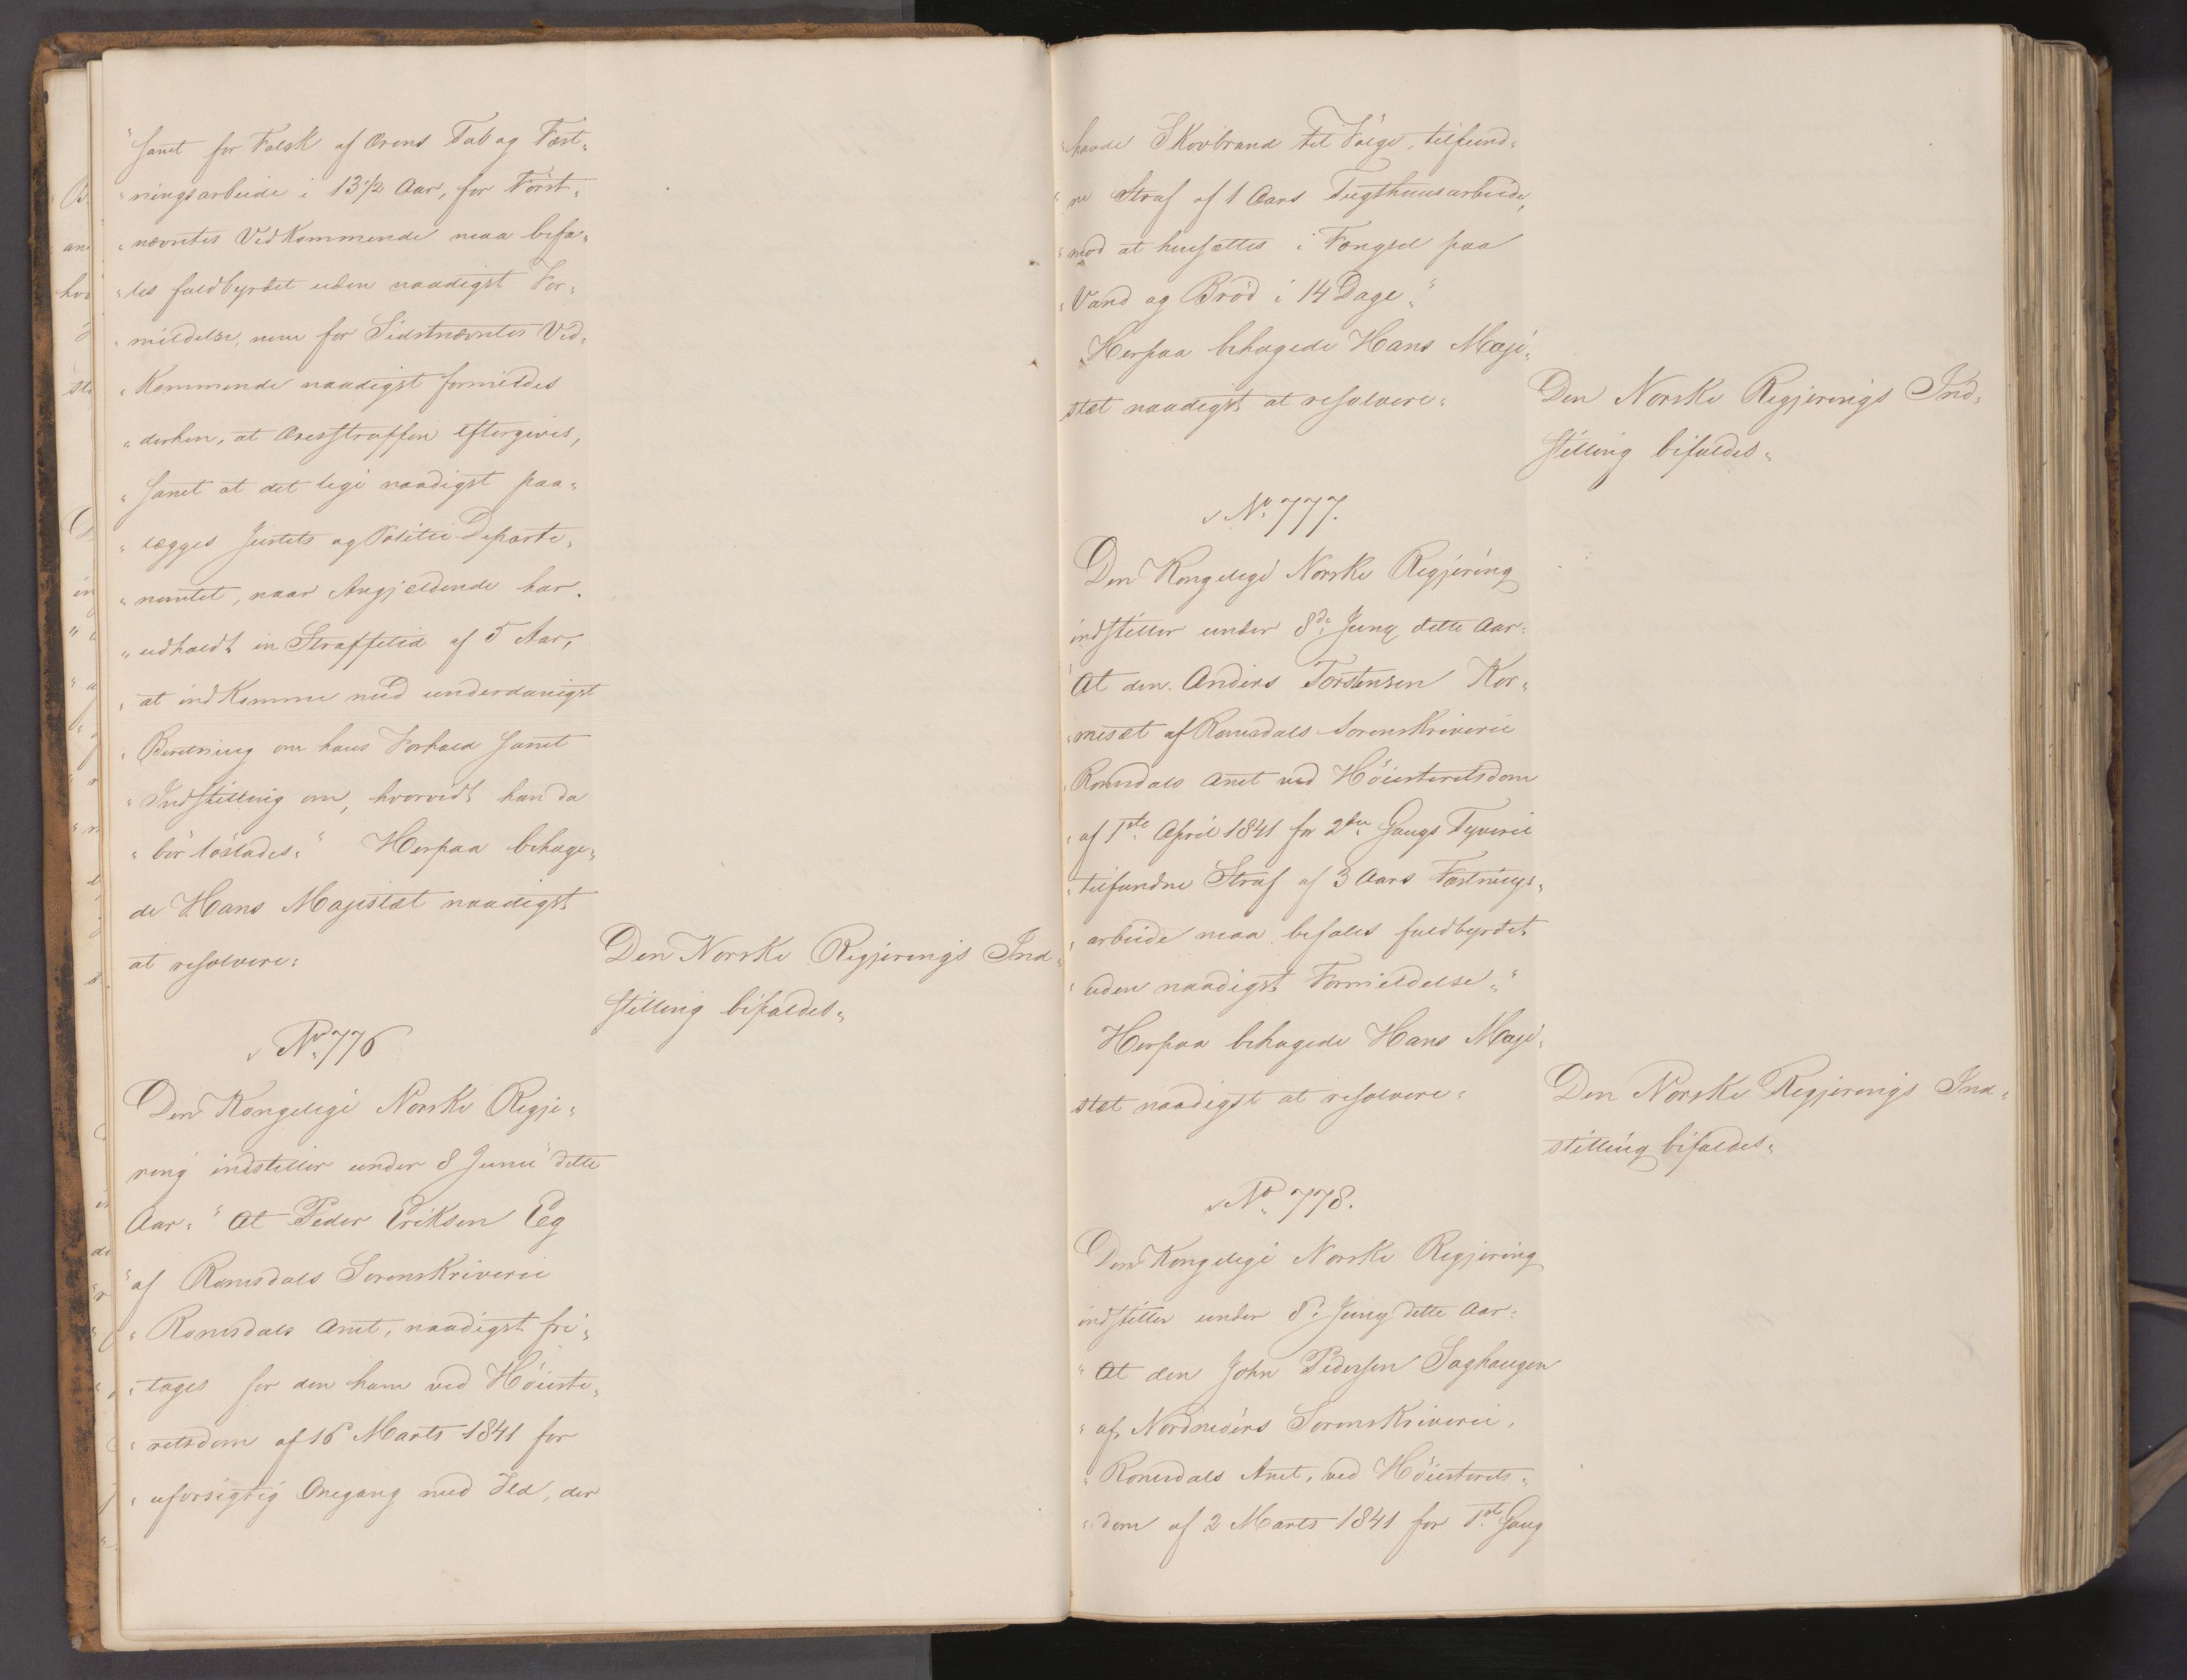 "samt for Falsk af Ærens Tab og Fæst-
"ningsarbeide i 13 1/2 Aar, for Först-
"nævntes Vedkommende maa befa-
"les fuldbyrdet uden naadigst For-
"mildelse, men for Sidstnævntes Ved-
"kommende naadigst formildes
"derhen, at Æresstraffen eftergives,
"samt at det lige naadigst paa-
"lægges Justits og Politie-Departe-
"mentet, naar Angjældende har
"udholdt en Straffetid af 5 Aar,
"at indkomme med underdanigst
"Beretning om hans Forhold samt
"Indstilling om, hvorvidt han da
"bör löslades." Herpaa behage-
de Hans Majestæt naadigst
at resolvere:
Den Norske Regjerings Ind-
stilling bifaldes.
No 776
Den Kongelige Norske Regje-
ring indstiller under 8 Junii dette
Aar: "At Peder Eriksen Eeg
"af Romsdals Sorenskriverie
"Romsdals Amt, naadigst fri-
"tages for den ham ved Höieste-
"retsdom af 16 Marts 1841 for
"uforsigtig Omgang med Ild, der
"havde Skovbrand til Fölge, tilfund-
"ne Straf af 1 Aars Tugthuusarbeide,
"mod at hensættes i Fængsel paa
"Vand og Bröd i 14 Dage."
Herpaa behagede Hans Maje-
stæt naadigst at resolvere:
Den Norske Regjerings Ind-
stilling bifaldes.
No 777.
Den Kongelige Norske Regjering
indstiller under 8de Juny dette Aar:
"At den Anders Torstensen Kor-
"mesæt af Romsdals Sorenskriverie
"Romsdals Amt ved Höiesteretsdom
"af 1ste April 1841 for 2den Gangs Tyverie
"tilfundne Straf af 3 Aars Fæstnings-
"arbeide maa befales fuldbyrdet
"uden naadigst Formildelse."
Herpaa behagede Hans Maje-
stæt naadigst at resolvere:
Den Norske Regjerings Ind-
stilling bifaldes.
No 778.
Den Kongelige Norske Regjering
indstiller under 8de Juny dette Aar:
"At den John Pedersen Saghaugen
"af Nordmöers Sorenskriverie,
"Romsdals Amt, ved Höiesterets-
"dom af 2 Marts 1841 for 1ste Gang